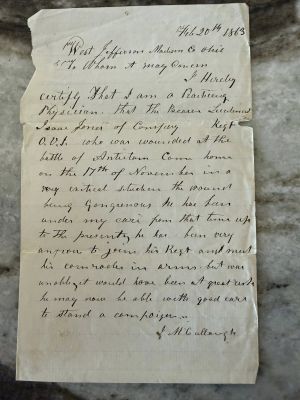 Feb 20th 1863
West Jefferson Madison Co Ohio
To Whom it may concern
I Hereby
certify That I am a Practicing
Physician. that the Bearer Lieutenant
Isaac Jones of Company Regt
O.V.I. who was wounded at the
battle of Antietam Came home
on the 17th of November in a
very critical the wound
being Gangrenous he has been
under my care from that time up
to the present, he has been very
anxious to join his Regt and meet
his comrades in arms. but was
unable, it would have been at great risk
he may now be able with good care
to stand a campaign
J McCullough